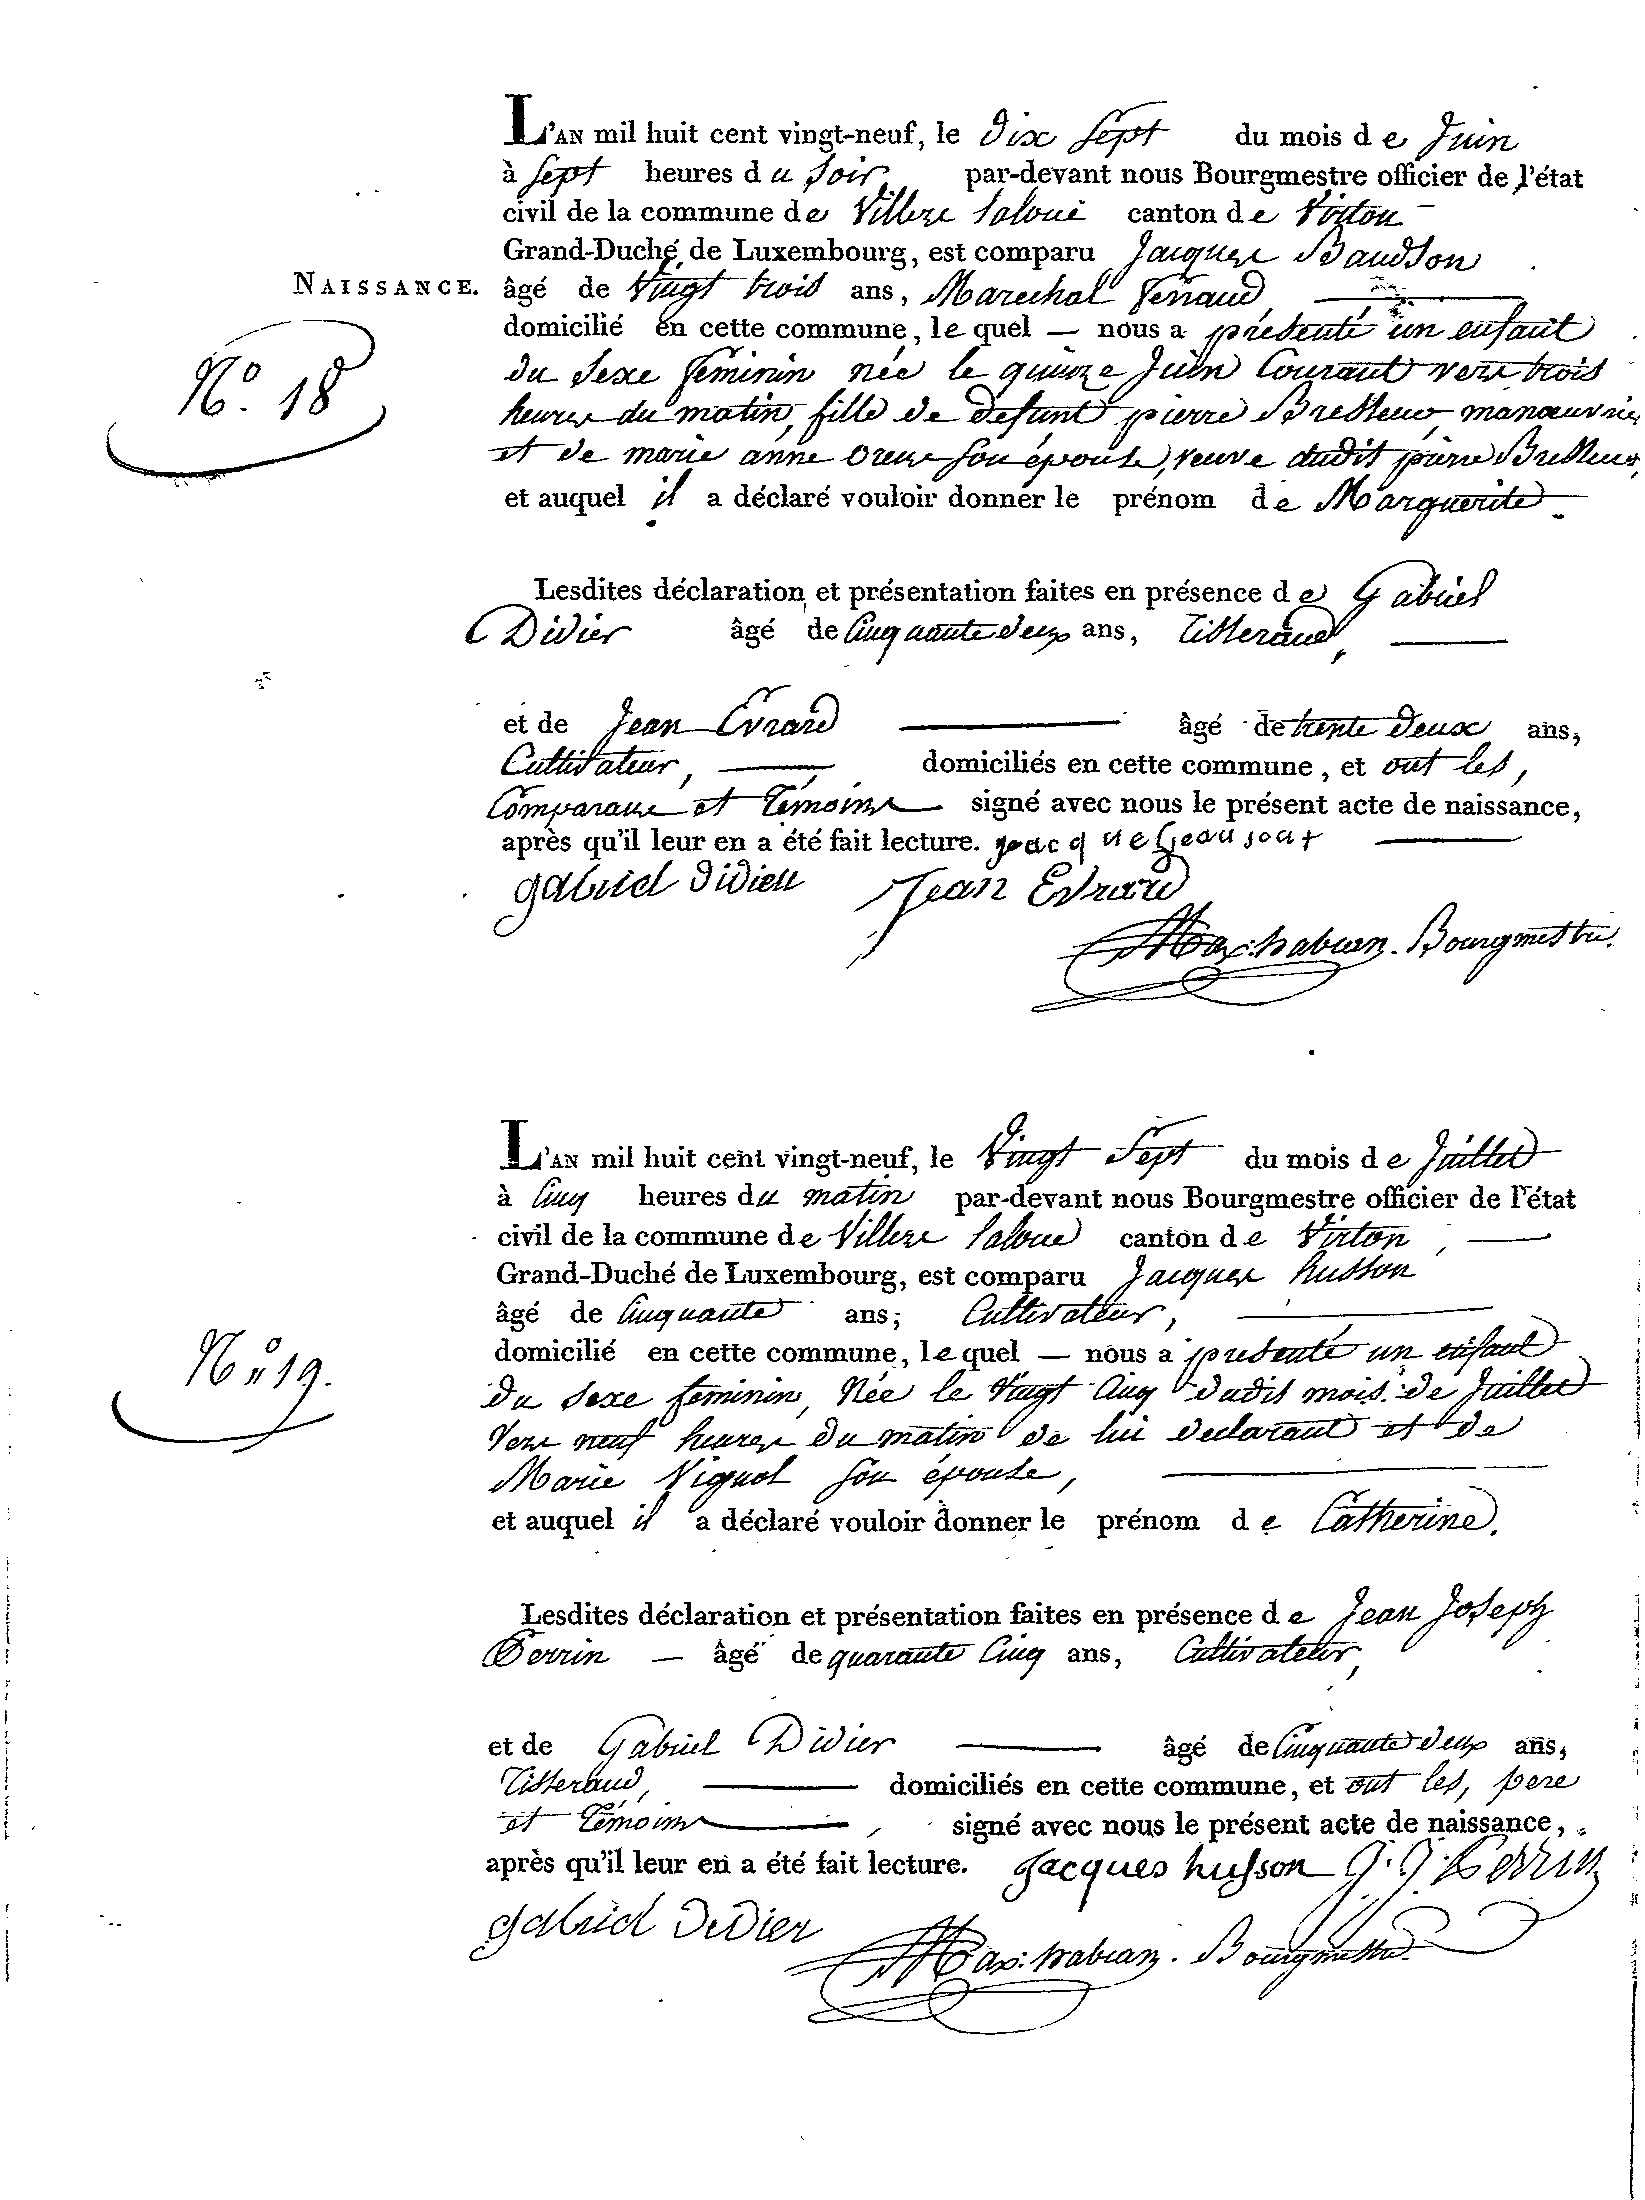 L'AN mil huit cent vingt-neuf, le Dix Sept du mois de Juin
à Sept heures du Soir par-devant nous Bourgmestre officier de l'état
civil de la commune de Villers laloue canton de Virton
Grand-Duché de Luxembourg, est comparu Jacques Baudson
NAISSANCE. âgé de Vingt trois ans, Marechal ferrand
domicilié en cette commune, le quel — nous a présenté un enfant
N.º 18
du Sexe feminin née le quinze Juin Courant vers trois
heures du matin, fille de defunt pierre manœuvrier
et de marie anne son épouse, veuve dudit pierre
et auquel il a déclaré vouloir donner le prénom de Marguerite.
Lesdites déclaration et présentation faites en présence de Gabriel
Didier âgé de Cinquante deux ans, Tisserand,
et de Jean Evrard âgé de trente deux ans,
Cultivateur, domiciliés en cette commune, et ont les,
Comparans et Témoins signé avec nous le présent acte de naissance,
après qu'il leur en a été fait lecture.
gabriel didier Jean Evrard
Bourgmestre.
L'AN mil huit cent vingt-neuf, le Vingt Sept du mois de Juillet
à Cinq heures du matin par-devant nous Bourgmestre officier de l'état
civil de la commune de Villers laloue canton de Virton,
Grand-Duché de Luxembourg, est comparu Jacques husson
âgé de Cinquante ans, Cultivateur,
domicilié en cette commune, le quel — nous a presenté un enfant
N.º 19.
du sexe feminin, Née le Vingt Cinq dudit mois de Juillet
Vers neuf heures du matin de lui declarant et de
Marie Vignol son épouse,
et auquel il a déclaré vouloir donner le prénom de Catherine.
Lesdites déclaration et présentation faites en présence de Jean Joseph
Perrin — âgé de quarante Cinq ans, Cultivateur,
et de Gabriel Didier âgé de Cinquante deux ans,
Tisserand, domiciliés en cette commune, et ont les, pere
et Témoins signé avec nous le présent acte de naissance,
après qu'il leur en a été fait lecture. Jacques husson J. J. Perrin
gabriel Didier
Bourgmestre.